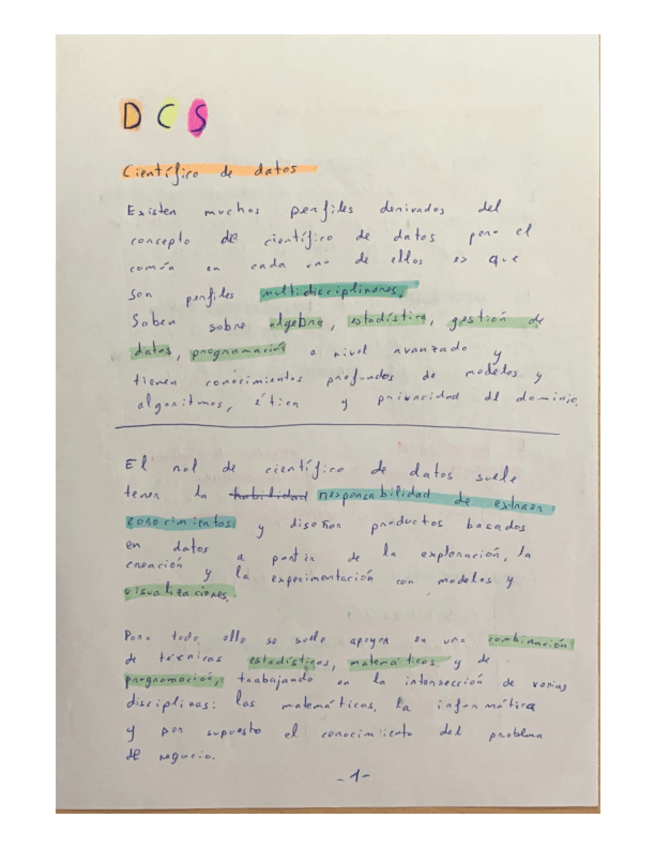 DCS
Científico de datos
Existen muchos perfiles derivados del
concepto de científico de datos pero el
común en cada uno de ellos es que
son perfiles multidisciplinares.
Saben sobre algebra, estadística, gestión de
datos, programación a nivel avanzado y
tienen conocimientos profundos de modelos y
algoritmos, ética y privacidad del dominio.
El rol de científico de datos suele
tener la habilidad responsabilidad de extraer
conocimientos y diseñar productos basados
en datos a partir de la exploración, la
creación y la experimentación con modelos y
visualizaciones.
Para todo ello se suele apoyar en una combinación
de técnicas estadísticas, matemáticas y de
programación, trabajando en la intersección de varias
disciplinas: las matemáticas, la informática
y por supuesto el conocimiento del problema
de negocio.
-1-